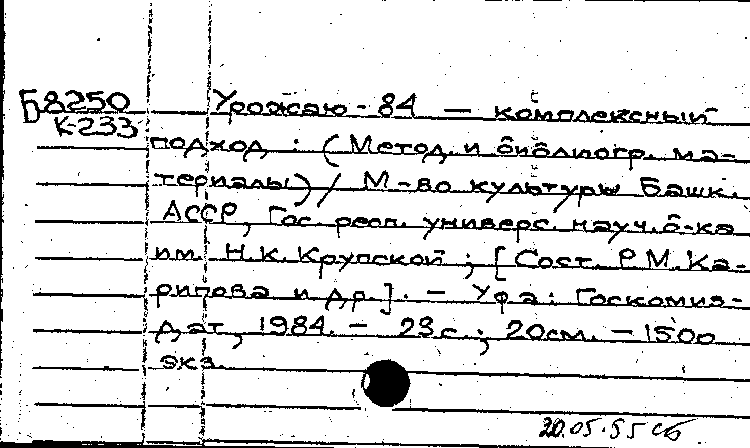 Б8250 Урожаю-84 — комплексный
К-233 подход : (Метод. и библиогр. ма-
териалы) / М-во культуры Башк.
АССР, Гос. респ. универс. науч. б-ка
им. Н.К. Крупской ; [Сост. Р.М. Ка-
рипова и др.]. – Уфа : Госкомиз-
дат, 1984. – 23 с ; 20 см. – 1500
экз.
20.05.95